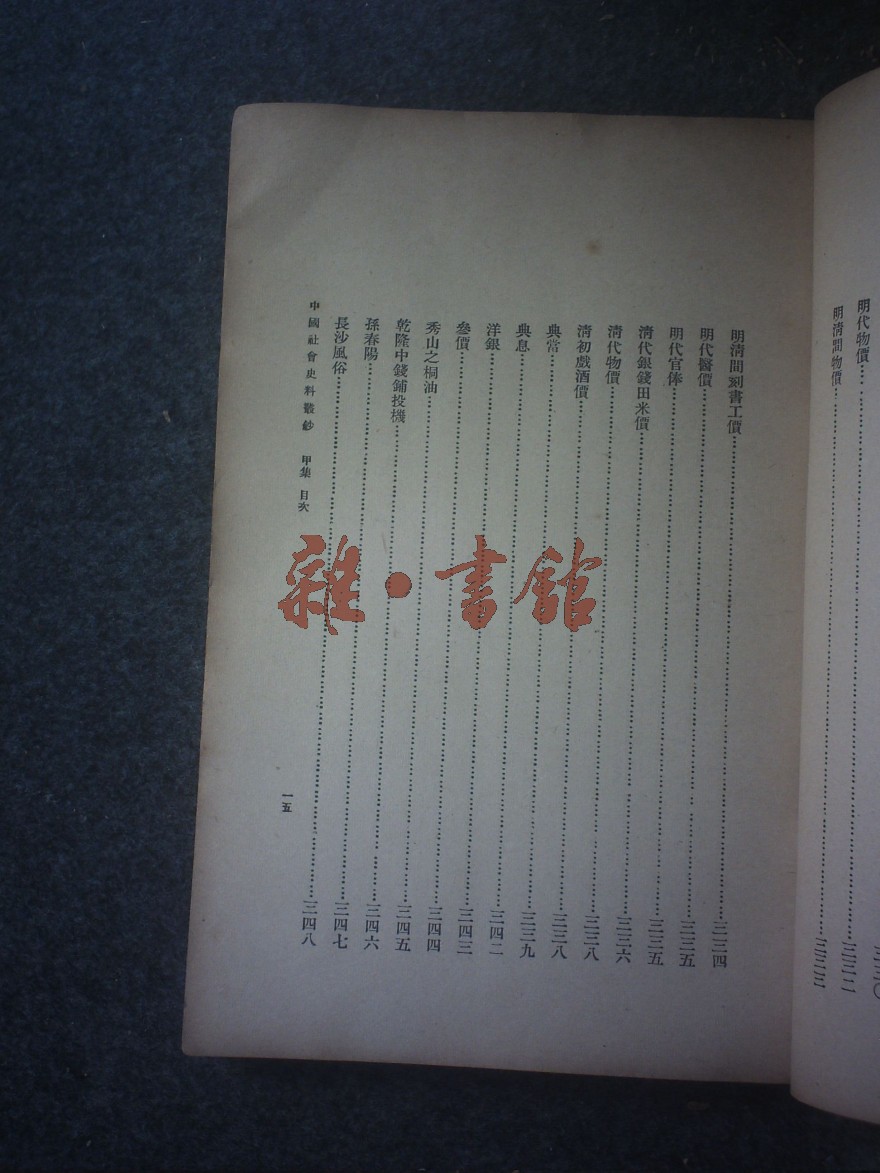 三三〇
明代物價……三三二
明清間物價……三三三
明清間刻書工價……三三四
明代醫價……三三五
明代官俸……三三五
清代銀錢田米價……三三六
清代物價……三三八
清初戲酒價……三三八
典當……三三九
典息……三四二
洋銀……三四三
參價……三四四
秀山之桐油……三四五
乾隆中錢鋪投機……三四六
孫春陽……三四七
長沙風俗……三四八
中國社會史料叢鈔 甲集 目次 一五
雜·書館